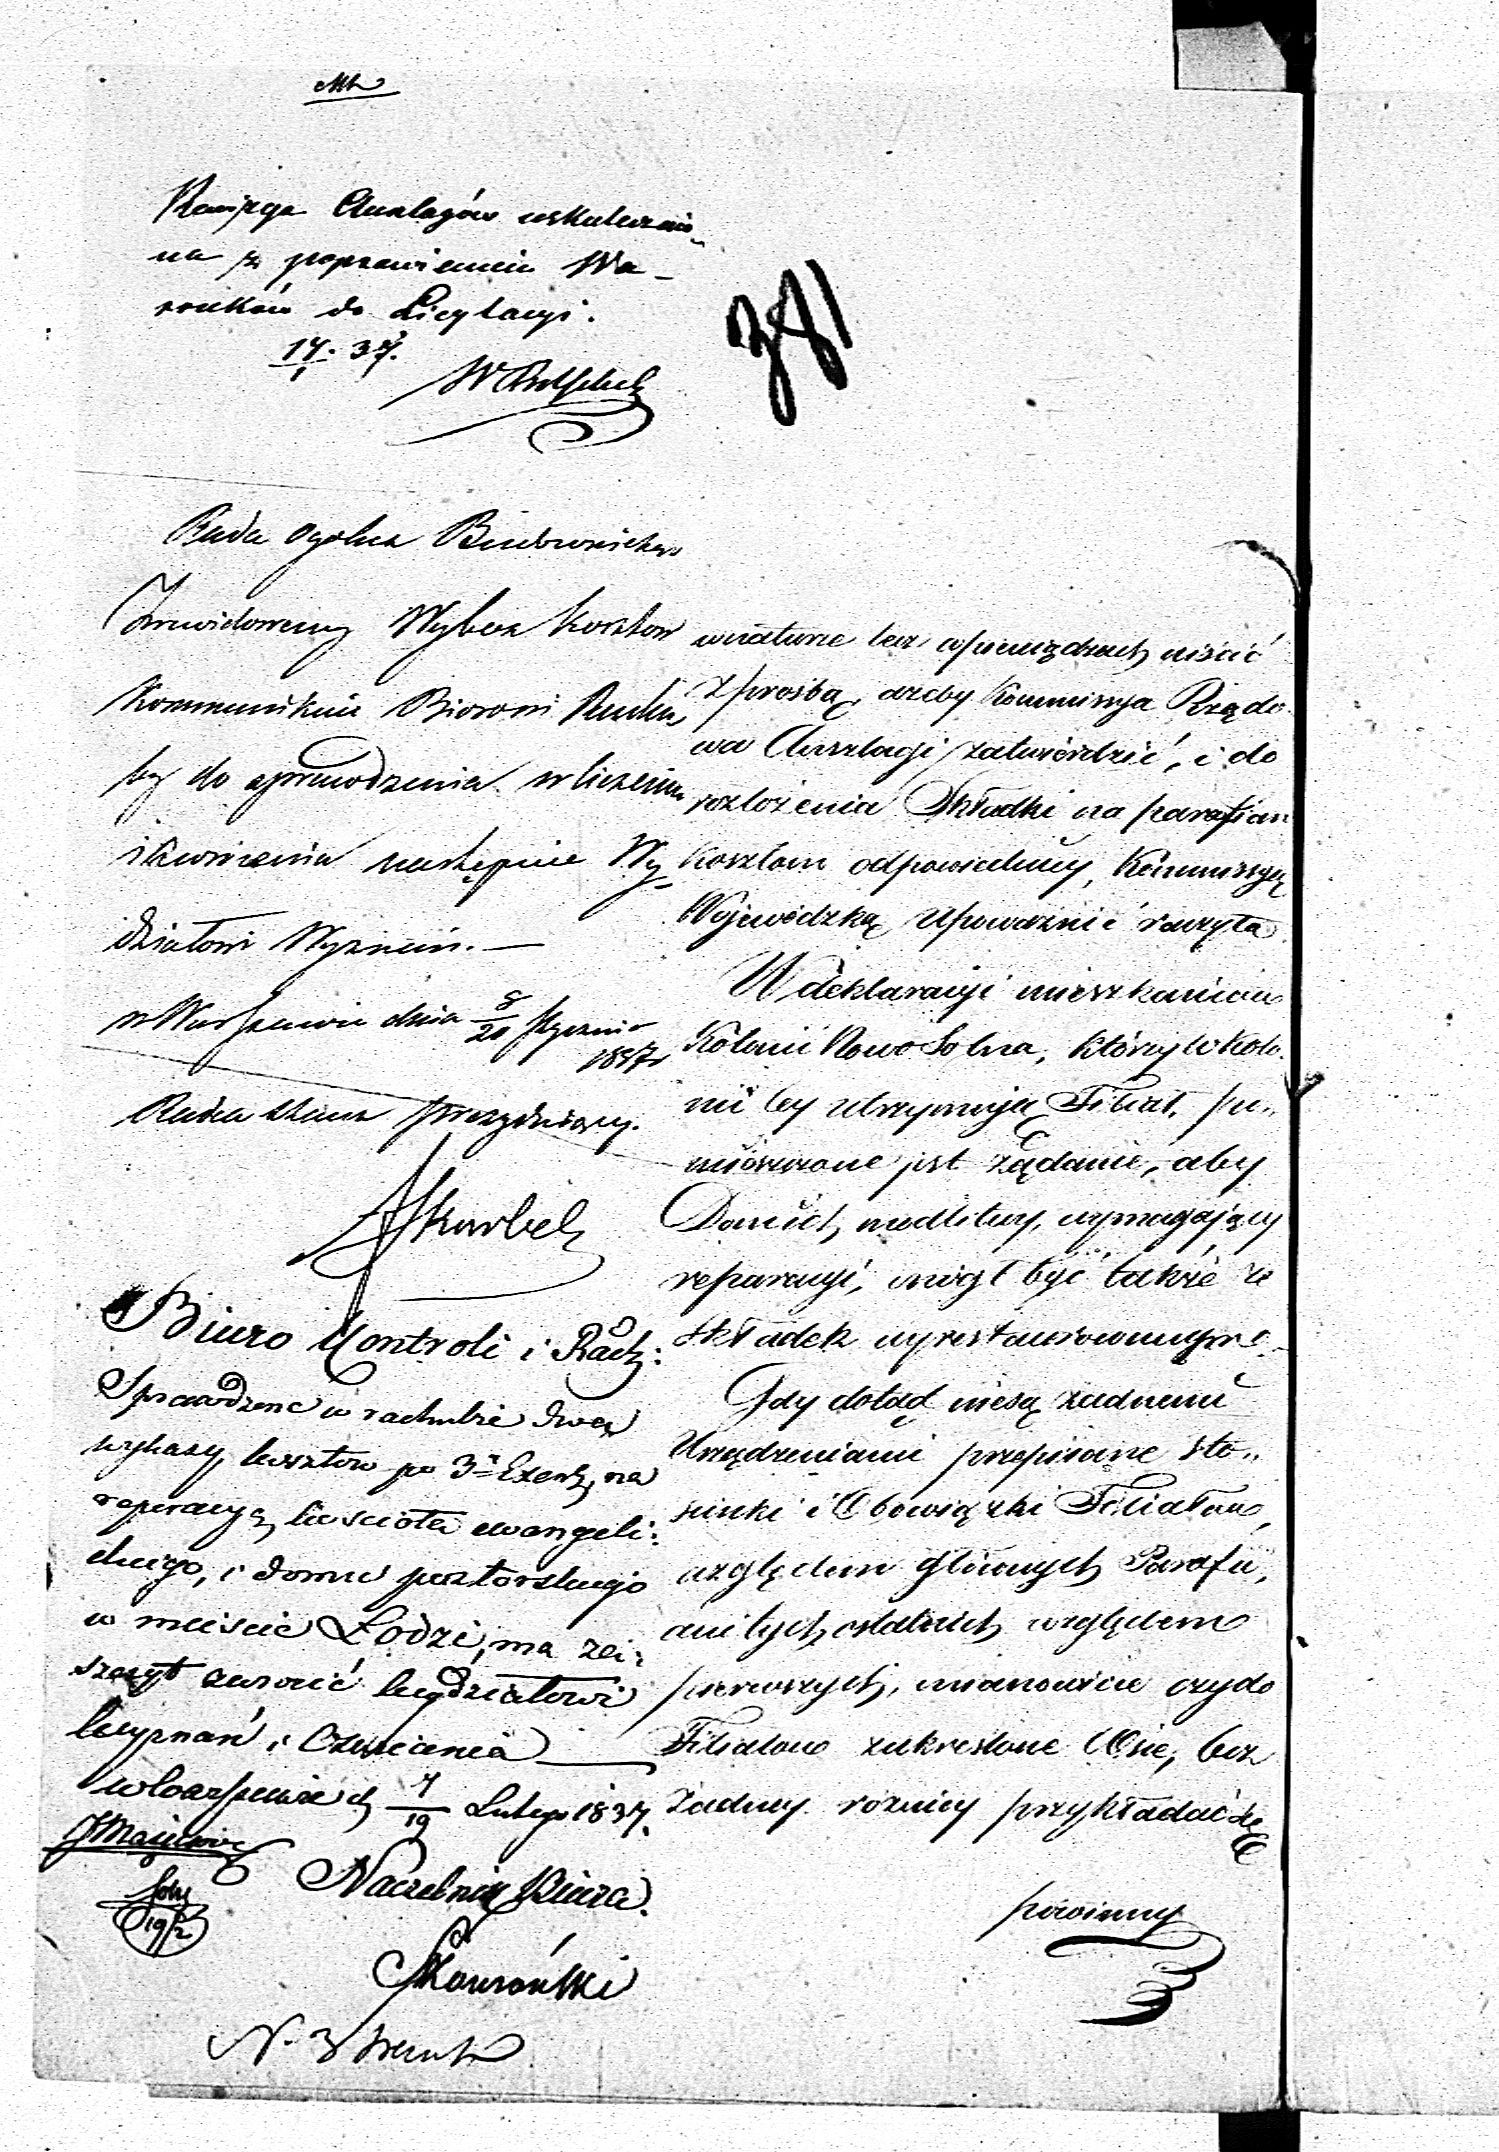 Rewizya Anszlagów uskutecznio-
na z poprawieniem Wa-
runków do Licytacyi.
17/1. 37.
381
Rada Ogolna Budownicza
Zrewidowany Wykaz kosztow
Kommunikuie Biorowi Rachu
by do sprawdzenia w liczeniu
i zwrócenia następnie Wy-
działowi Wyznań. —
w Warszawie dnia 8/20 Stycznia
1837 r
Radca Stanu Prezyduiący.
Skarbek
Biuro Kontroli i Rach:
Sprawdzone w rachubie dwa
wykazy kosztow po 3 Exem, na
reperacyą kościoła ewangeli:
ckiego, i domu pastorskiego
w mieście Łodzi, ma za:
szczyt zwrócić wydziałowi
wyznań i Oświecenia
w Warszawie d 7/19 Lutego 1837.
19/2
Naczelnik Biura.
Skowroński
N. 3
w naturze lub w pieniądzach uiścić
z prośbą, ażeby Kommissya Rządo
wa Anszlagi zatwierdzić, i do
rozłożenia Składki na parafian
kosztom odpowiedniey, Kommissyą
Wojewódzką upoważnić raczyła
W deklaracyi mieszkańców
Kolonii Nowo Solna, którzy w Kolo
nii tey utrzymują Filiał, za-
mieszczone jest żądanie, aby
Dom ich modlitwy, wymagający
reparacyi, mógł być także ze
składek wyrestaurowanym.
Gdy dotąd niesą żadnemi
Urządzeniami przepisane sto-
sunki i Obowiązki Filiałów,
względem głównych Parafii,
ani tych ostatnich względem
pierwszych, mianowicie czy do
Filiałów zakreślone Wsie, bez
żadney różnicy przykładać się
powinny